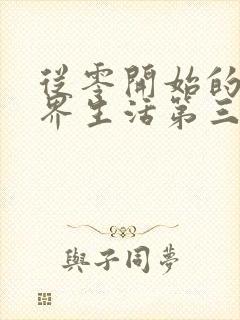 從零開始的
界生活第三
與子同夢